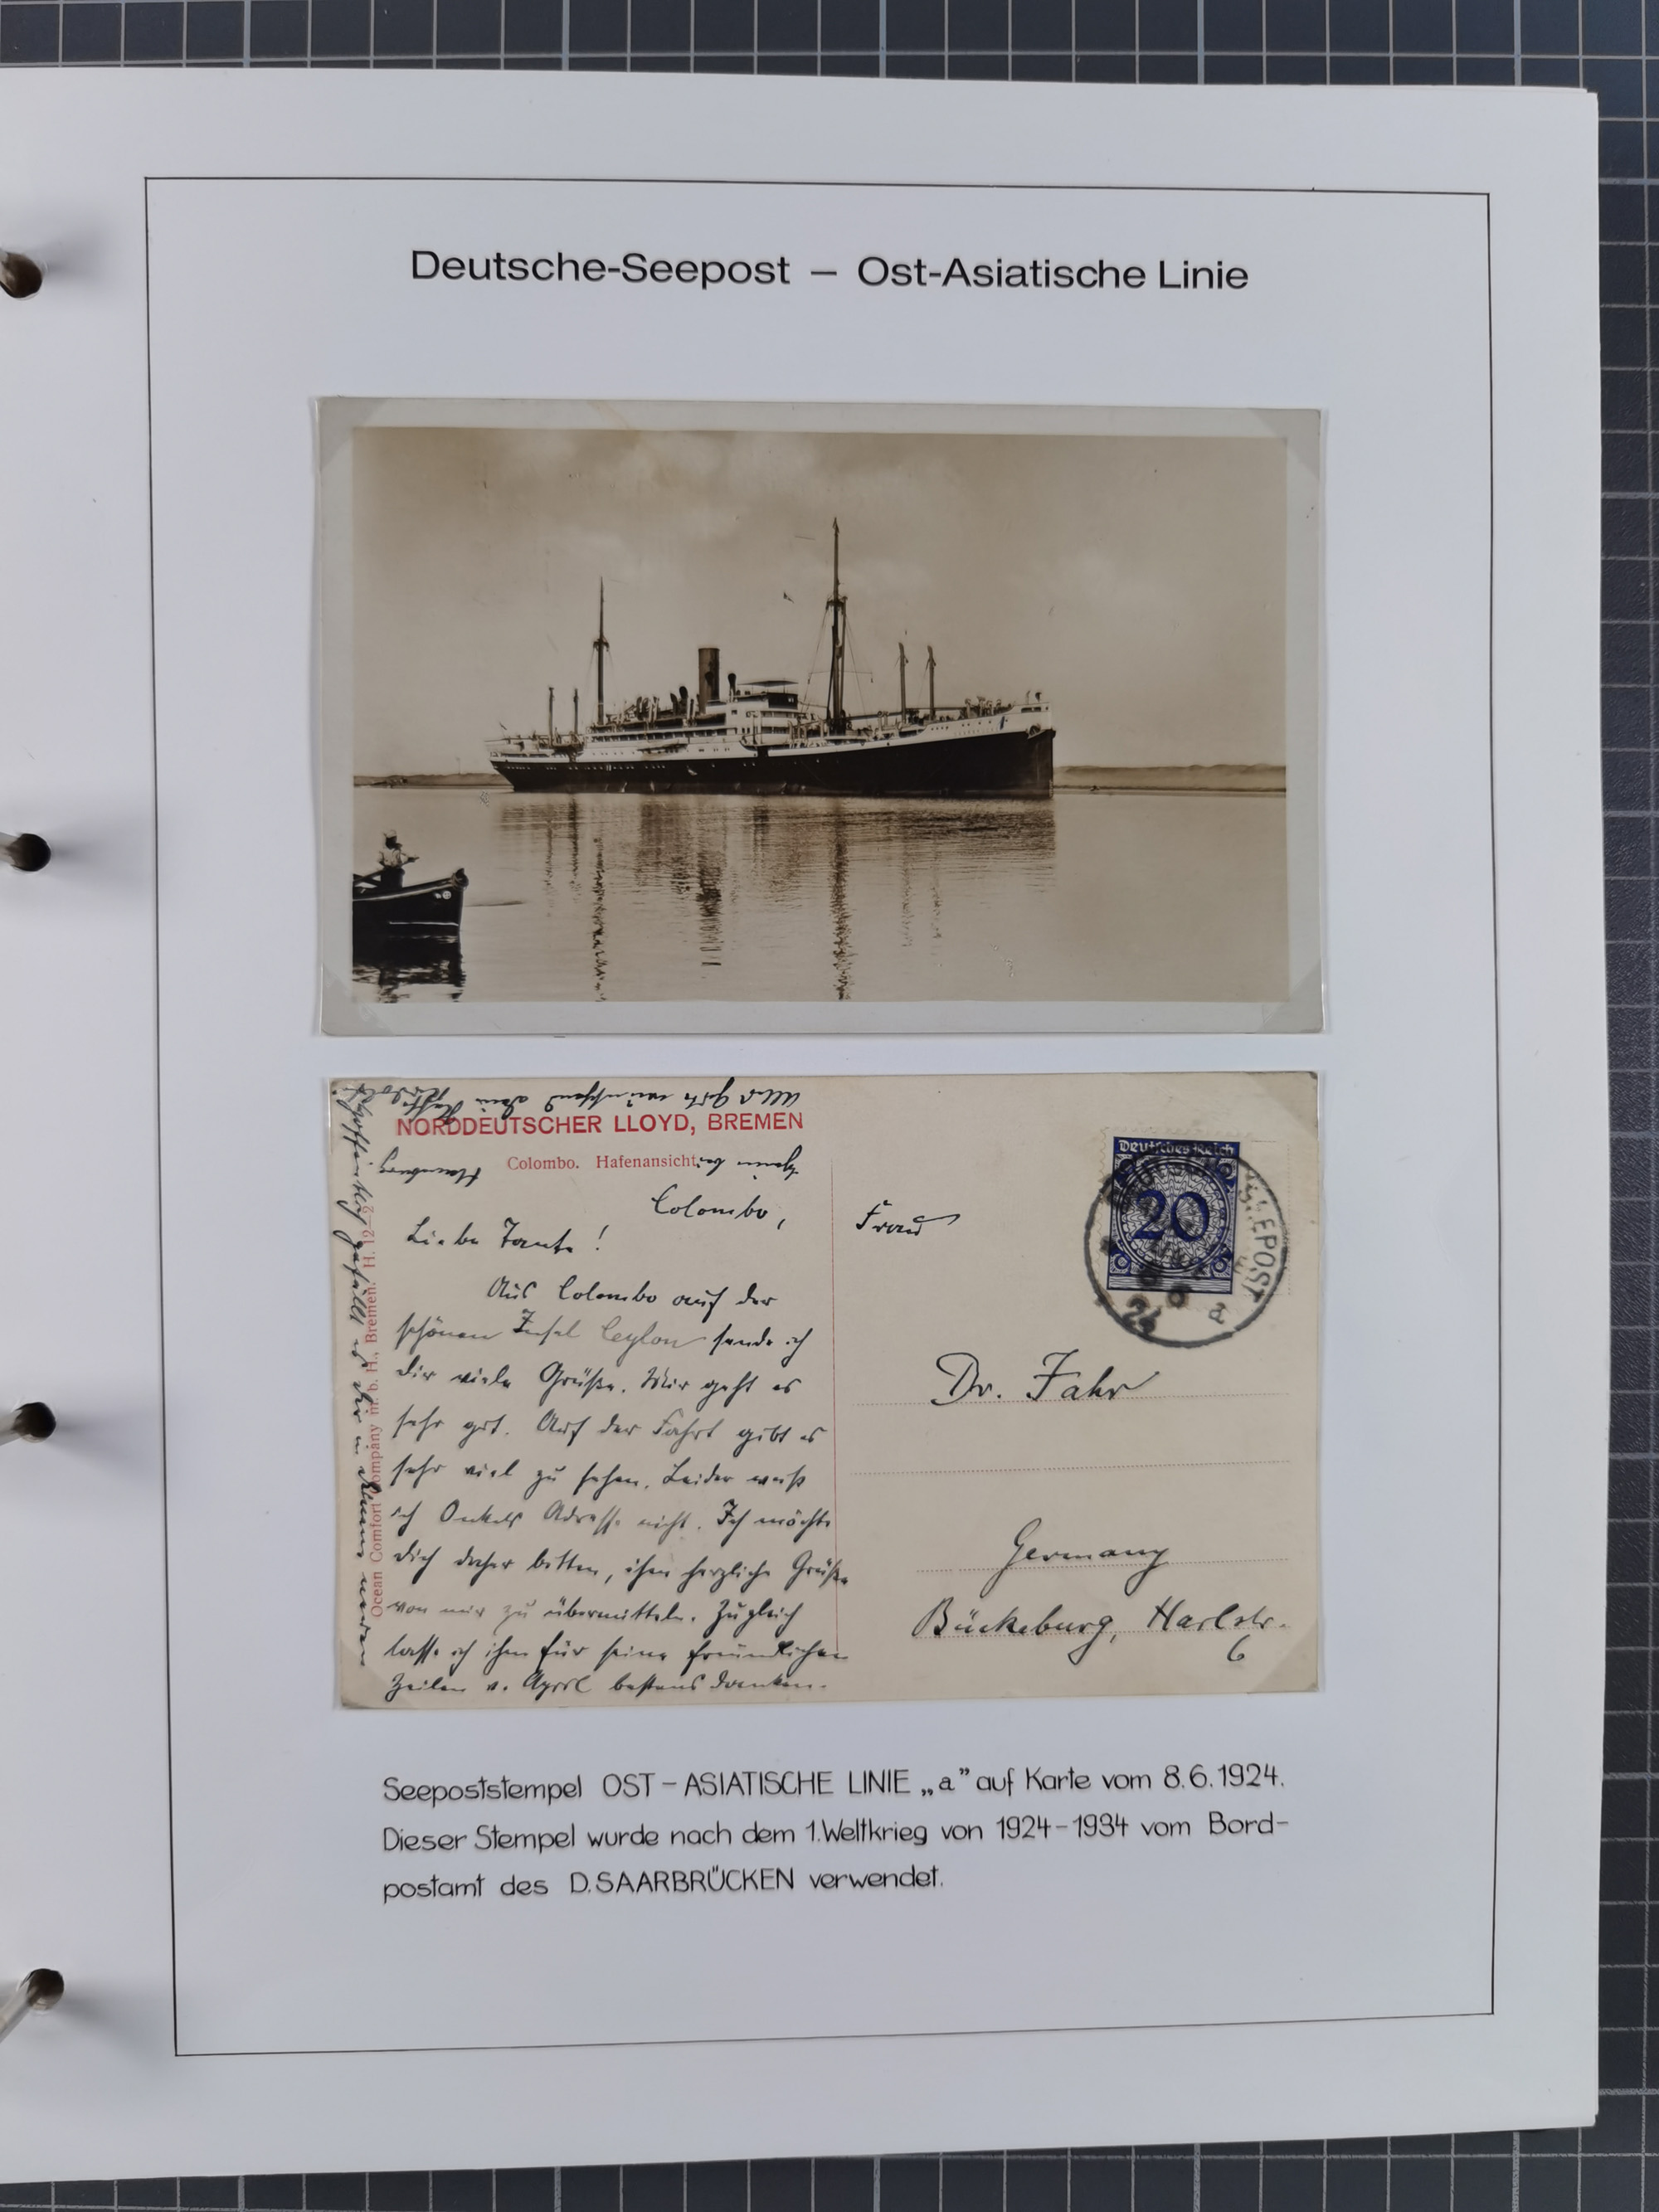 Deutsche-Seepost – Ost-Asiatische Linie
NORDDEUTSCHER LLOYD, BREMEN
Colombo. Hafenansicht.
Colombo,
Liebe Tante!
Aus Colombo auf der
schönen Insel Ceylon sende ich
Dir viele Grüße. Mir geht es
sehr gut. Auf der Fahrt gibt es
sehr viel zu sehen. Leider weiß
ich Onkels Adresse nicht. Ich möchte
Dich daher bitten, ihm herzliche Grüße
von mir zu übermitteln. Zugleich
lasse ich ihm für seine freundlichen
Zeilen v. April bestens danken.
Hoffentlich gefällt es Dir in
Alles Gute wünschend Dein Neffe
Ocean Comfort Company m. b. H., Bremen. H. 12–2
Deutsches Reich
20
SEEPOST
LINIE
8 6
24
a
Frau
Dr. Fahr
Germany
Bückeburg, Harlstr.
6
Seepoststempel OST-ASIATISCHE LINIE „a” auf Karte vom 8.6.1924.
Dieser Stempel wurde nach dem 1.Weltkrieg von 1924-1934 vom Bord-
postamt des D.SAARBRÜCKEN verwendet.